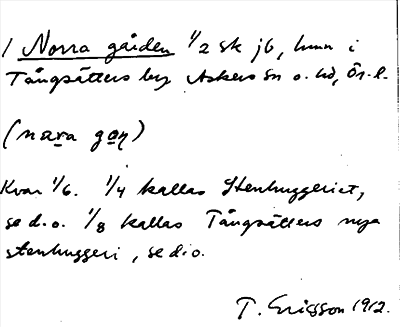 / Norra gården 1/2 sk jb, hmn i
Tångsätters by Askers sn o. hd, Ör. l.
(nara gaɳ)
Kvar 1/6. 1/4 kallas Stenhuggeriet,
se d.o. 1/8 kallas Tångsätters nya
stenhuggeri, se d.o.
T. Ericsson 1912.